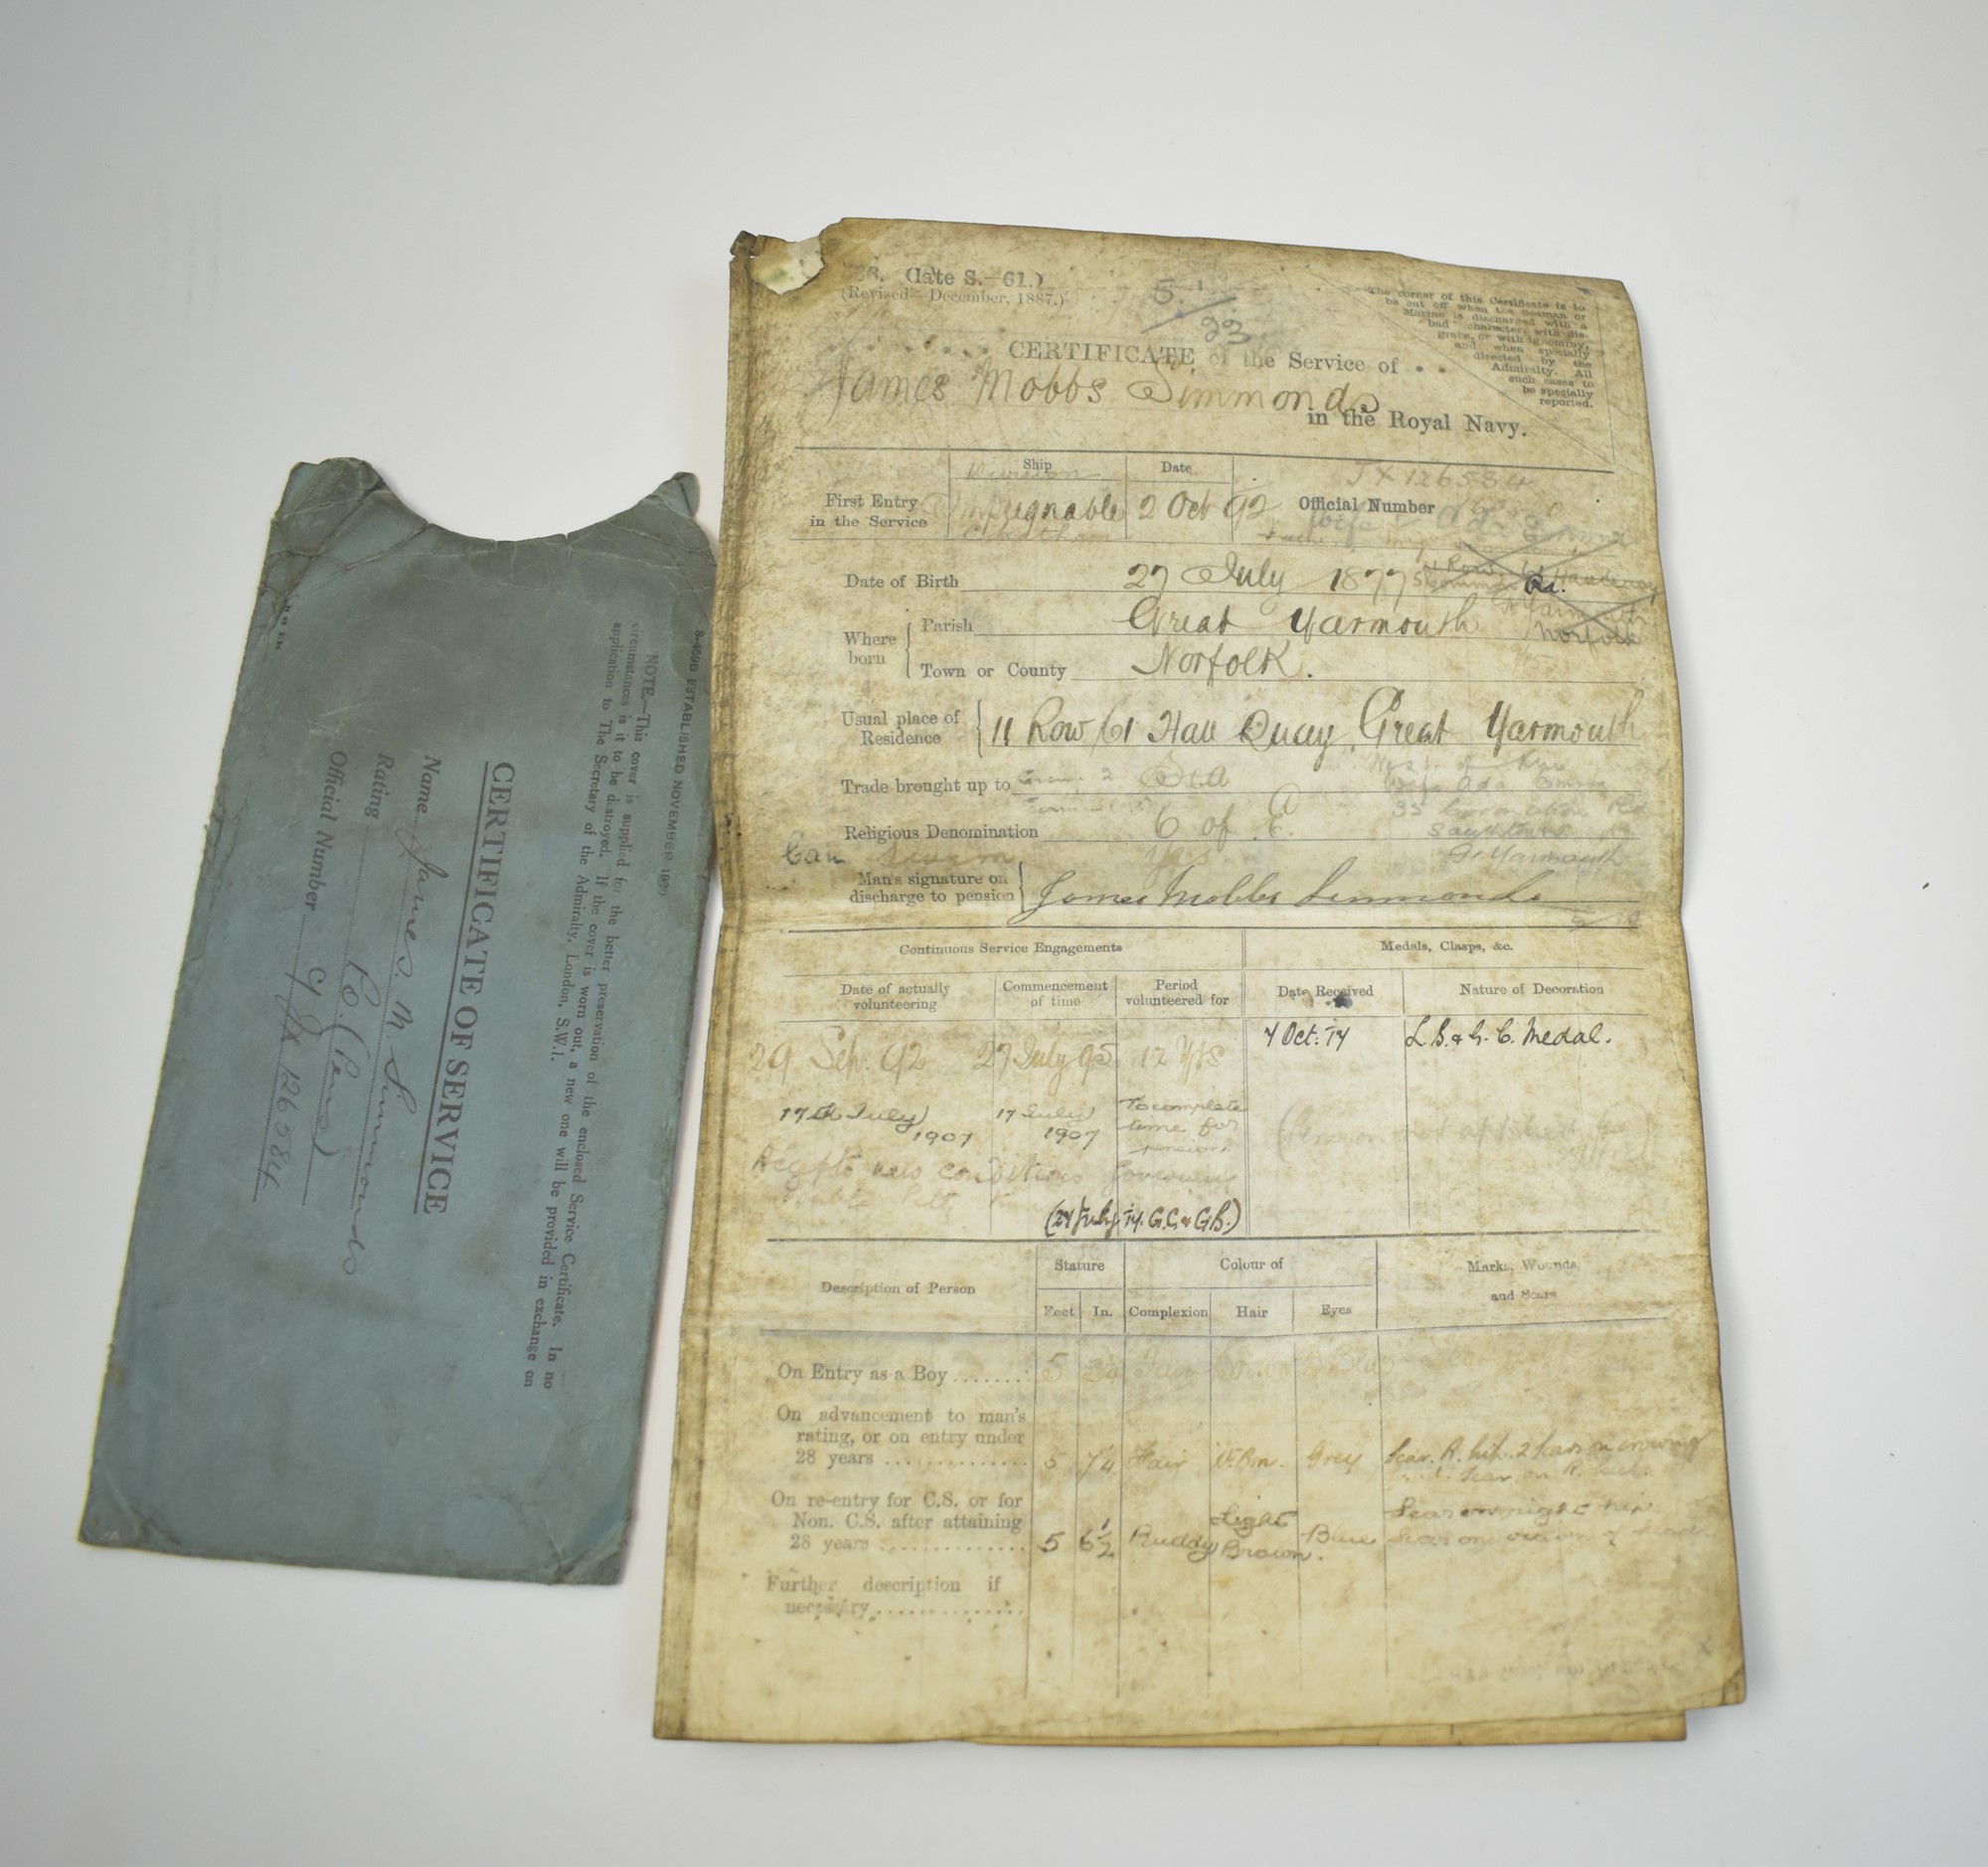 (late S.—61.)
(Revised—December, 1887.)
5
23
The corner of this Certificate is to
be cut off when the Seaman or
Marine is discharged with a
"bad" character, with dis-
grace, or with ignominy,
and when specially
directed by the
Admiralty. All
such cases to
be specially
reported.
CERTIFICATE of the Service of
James Mobbs Simmonds
in the Royal Navy.
Ship
Date
Division
First Entry
in the Service
Impregnable
Chatham
2 Oct 92
Official Number
Date of Birth
27 July 1877
Where
born
Parish
Great Yarmouth
Norfolk
Town or County
Norfolk.
Usual place of
Residence
11 Row 61 Hall Quay Great Yarmouth
Trade brought up to
Sea
Wife Ada
33 Coronation Rd
Southtown
Gt Yarmouth
Religious Denomination
C of E.
Can Swim Yes
Man's signature on
discharge to pension
James Mobbs Simmonds
Continuous Service Engagements
Medals, Clasps, &c.
Date of actually
volunteering
Commencement
of time
Period
volunteered for
Date Received
Nature of Decoration
29 Sep. 92
27 July 95
12 Yrs
4 Oct: 14
L.S. & G. C. Medal.
17th July
1907
17 July
1907
To complete
time for
pension
Accepts new conditions governing
(24 July 14. G.C. & G.B.)
Description of Person
Stature
Colour of
Marks, Wounds,
and Scars
Feet
In.
Complexion
Hair
Eyes
On Entry as a Boy
5
Fair
Brown
Blue
On advancement to man's
rating, or on entry under
28 years
5
Fair
Grey
On re-entry for C.S. or for
Non. C.S. after attaining
28 years
5
6½
Ruddy
Light
Brown.
Blue
Scar on right hip
Scar on crown of head
Further description if
necessary
S-459B ESTABLISHED NOVEMBER 1920
NOTE.—This cover is supplied for the better preservation of the enclosed Service Certificate. In no
circumstances is it to be destroyed. If the cover is worn out, a new one will be provided in exchange on
application to The Secretary of the Admiralty, London, S.W.1.
CERTIFICATE OF SERVICE
Name James. M. Simmonds
Rating Po. (Pens)
Official Number C/JX 126584